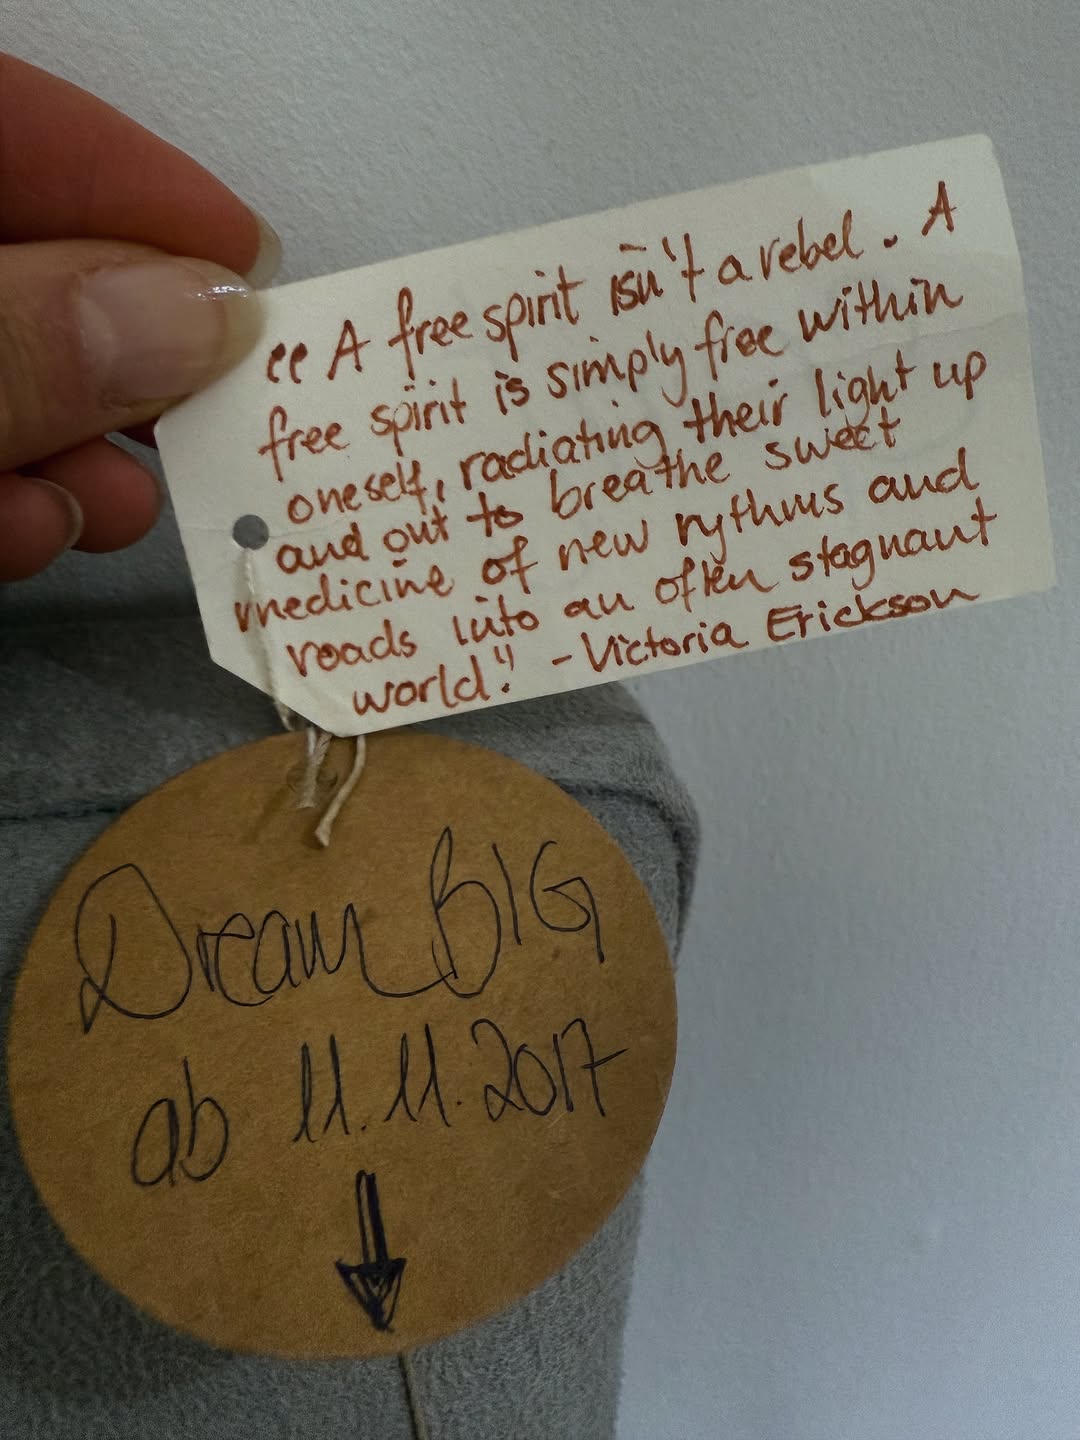 "A free spirit isn't a rebel. A
free spirit is simply free within
oneself, radiating their light up
and out to breathe sweet
medicine of new rythms and
roads into an often stagnant
world." - Victoria Erickson
Dream BIG
ab 11.11.2017